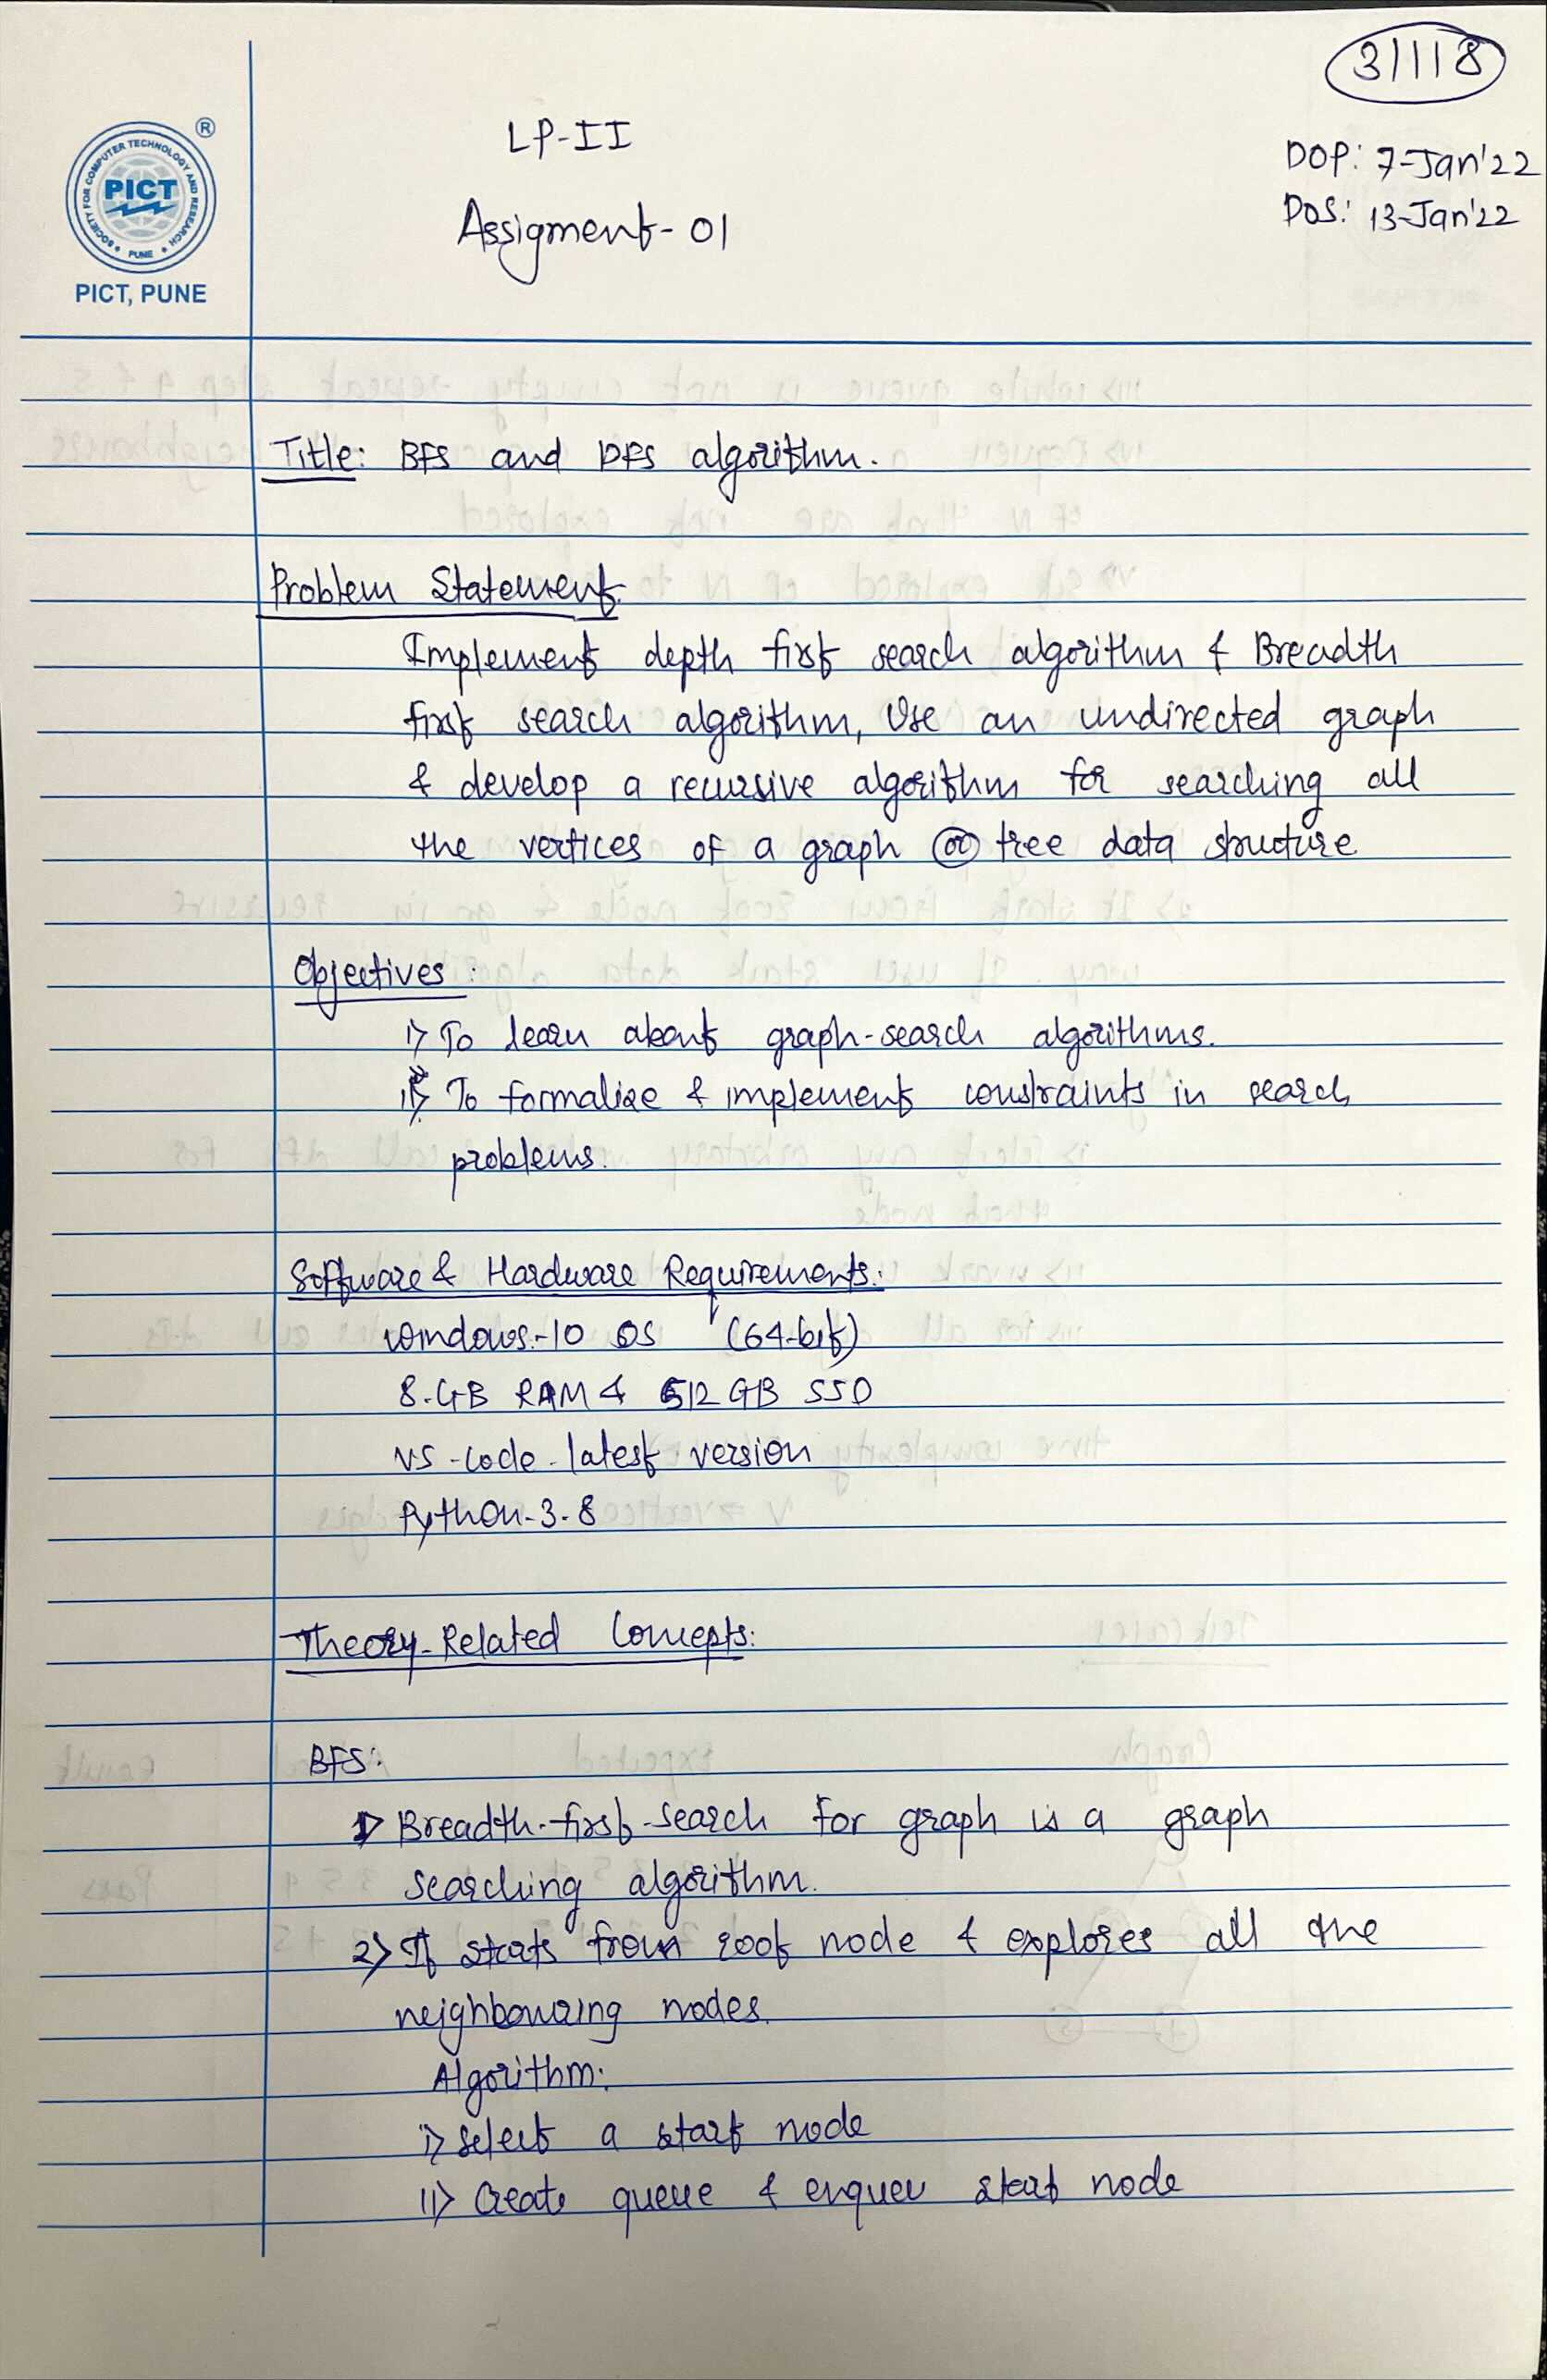 31118
LP-II
DOP: 7-Jan'22
Assigment-01
DOS: 13-Jan'22
SOCIETY FOR COMPUTER TECHNOLOGY AND RESEARCH
PUNE
PICT
®
PICT, PUNE
Title: BFS and DFS algorithm.
Problem Statement.
Implement depth first search algorithm & Breadth
first search algorithm, Use an undirected graph
& develop a recursive algorithm for searching all
the vertices of a graph or tree data structure
Objectives:
i> To learn about graph-search algorithms.
ii> To formalize & implement constraints in search
problems.
Software & Hardware Requirements:
windows-10 OS (64-bit)
8-GB RAM & 512 GB SSD
VS-code-latest version
Python-3.8
Theory-Related Concepts:
BFS:
1> Breadth-first-search for graph is a graph
searching algorithm.
2> It starts from root node & explores all the
neighbouring nodes.
Algorithm:
i> Select a start node
ii> Create queue & enqueu start node